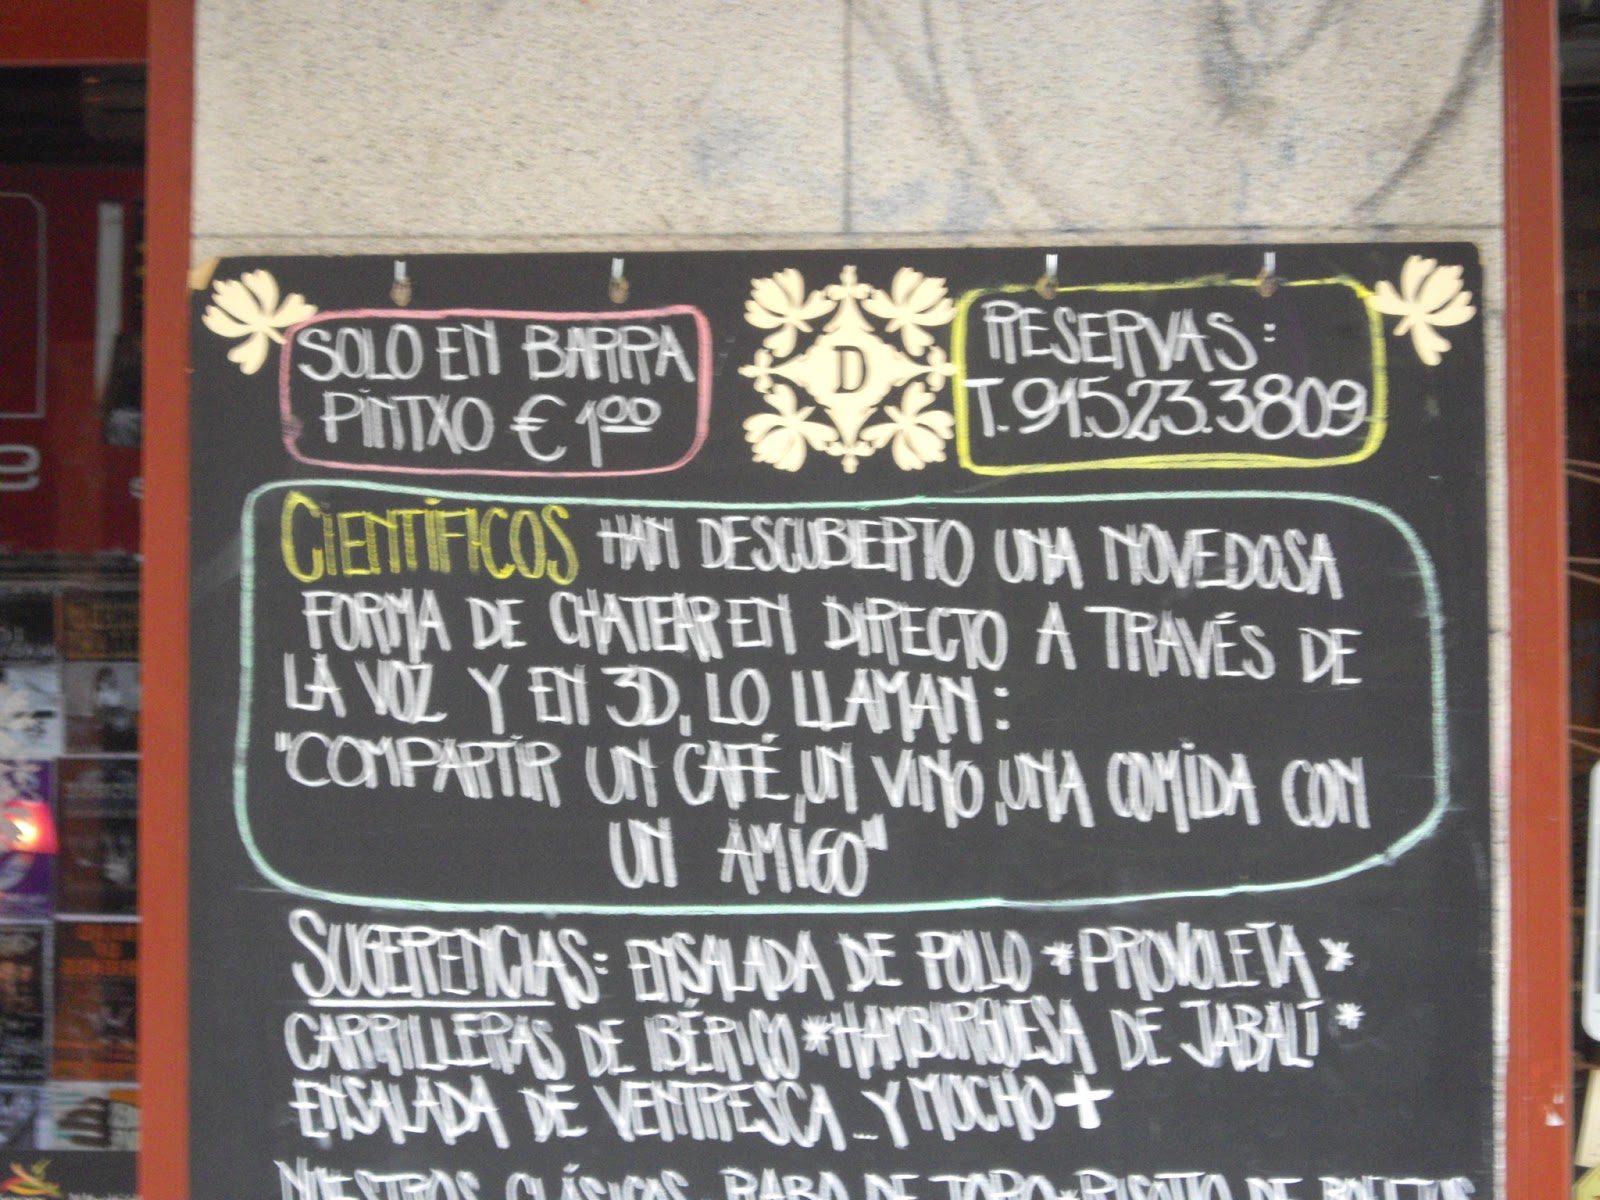 SOLO EN BARRA
PINTXO € 1.00
D
RESERVAS:
T. 91.523.3809
CIENTÍFICOS HAN DESCUBIERTO UNA NOVEDOSA
FORMA DE CHATEAR EN DIRECTO A TRAVÉS DE
LA VOZ Y EN 3D, LO LLAMAN:
"COMPARTIR UN CAFÉ, UN VINO, UNA COMIDA CON
UN AMIGO"
SUGERENCIAS: ENSALADA DE POLLO * PROVOLETA *
CARRILLERAS DE IBÉRICO * HAMBURGUESA DE JABALÍ *
ENSALADA DE VENTRESCA... Y MUCHO +
NUESTROS CLÁSICOS RABO DE TORO * RISOTTO DE BOLETUS